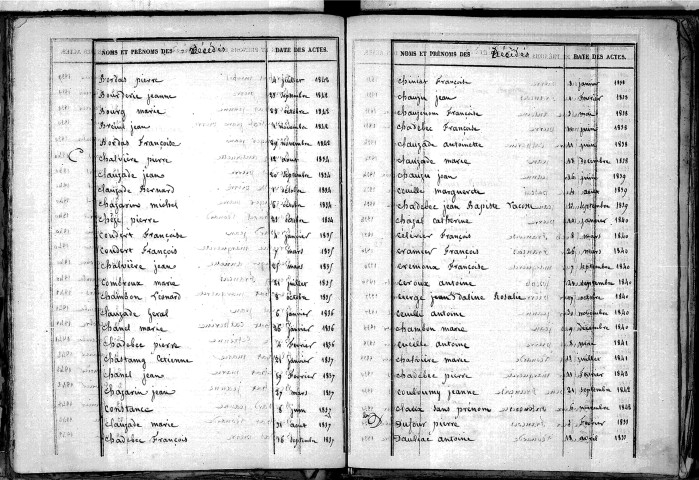 NOMS ET PRÉNOMS DES Décédés DATE DES ACTES.
Bordas pierre 4 juillet 1842
Bourderie jeanne 28 septembre 1842
Bourg marie 28 octobre 1842
Breuil jean novembre 1842
Bordas Françoise 29 novembre 1842
C chalvière pierre 12 aout 1834
clauzade jeanne 20 septembre 1834
clauzade Bernard 1er octobre 1834
chazarins michel 6 octobre 1834
chèze pierre 21 octobre 1834
coudert Françoise 4 janvier 1835
coudert François 7 mars 1835
chalvière jean 25 mars 1835
combroux marie 21 juillet 1835
chambon Léonard 8 octobre 1835
clauzade Géral 6 janvier 1836
chanel marie 26 janvier 1836
chadebec pierre 24 Fevrier 1836
chastang Etienne 24 janvier 1837
chanel jean 29 Fevrier 1837
chazarin jean 27 mars 1837
constance 8 juin 1837
clauzade marie 31 aout 1837
chadebec François 16 septembre 1837
NOMS ET PRÉNOMS DES Décédés DATE DES ACTES.
Françoise 3 janvier 1838
chauzu jean 1 Fevrier 1838
Françoise 3 mai 1838
chadebec Françoise 10 juin 1838
clauzade antoinette 11 juin 1838
clauzade marie 18 decembre 1838
chauzu jean 26 juin 1839
ceuille marguerite 4 aout 1839
chadebec jean Baptiste Lacoste 12 septembre 1839
chazal catherine 22 janvier 1840
célérier François 8 mars 1840
cramier François 26 mars 1840
cremoux Françoise 7 septembre 1840
ceroux antoine 24 septembre 1840
jeanne Rosalie 27 octobre 1840
ceuille antoine 30 novembre 1840
chambon marie 29 décembre 1840
ceuille antoine 8 mai 1841
chalvière marie 11 juillet 1841
chadebec pierre 11 Fevrier 1842
couloumy jeanne 21 septembre 1842
claux sans prenom 6 novembre 1842
D Dufour pierre 2 Fevrier 1833
Dauliac antoine 18 avril 1833